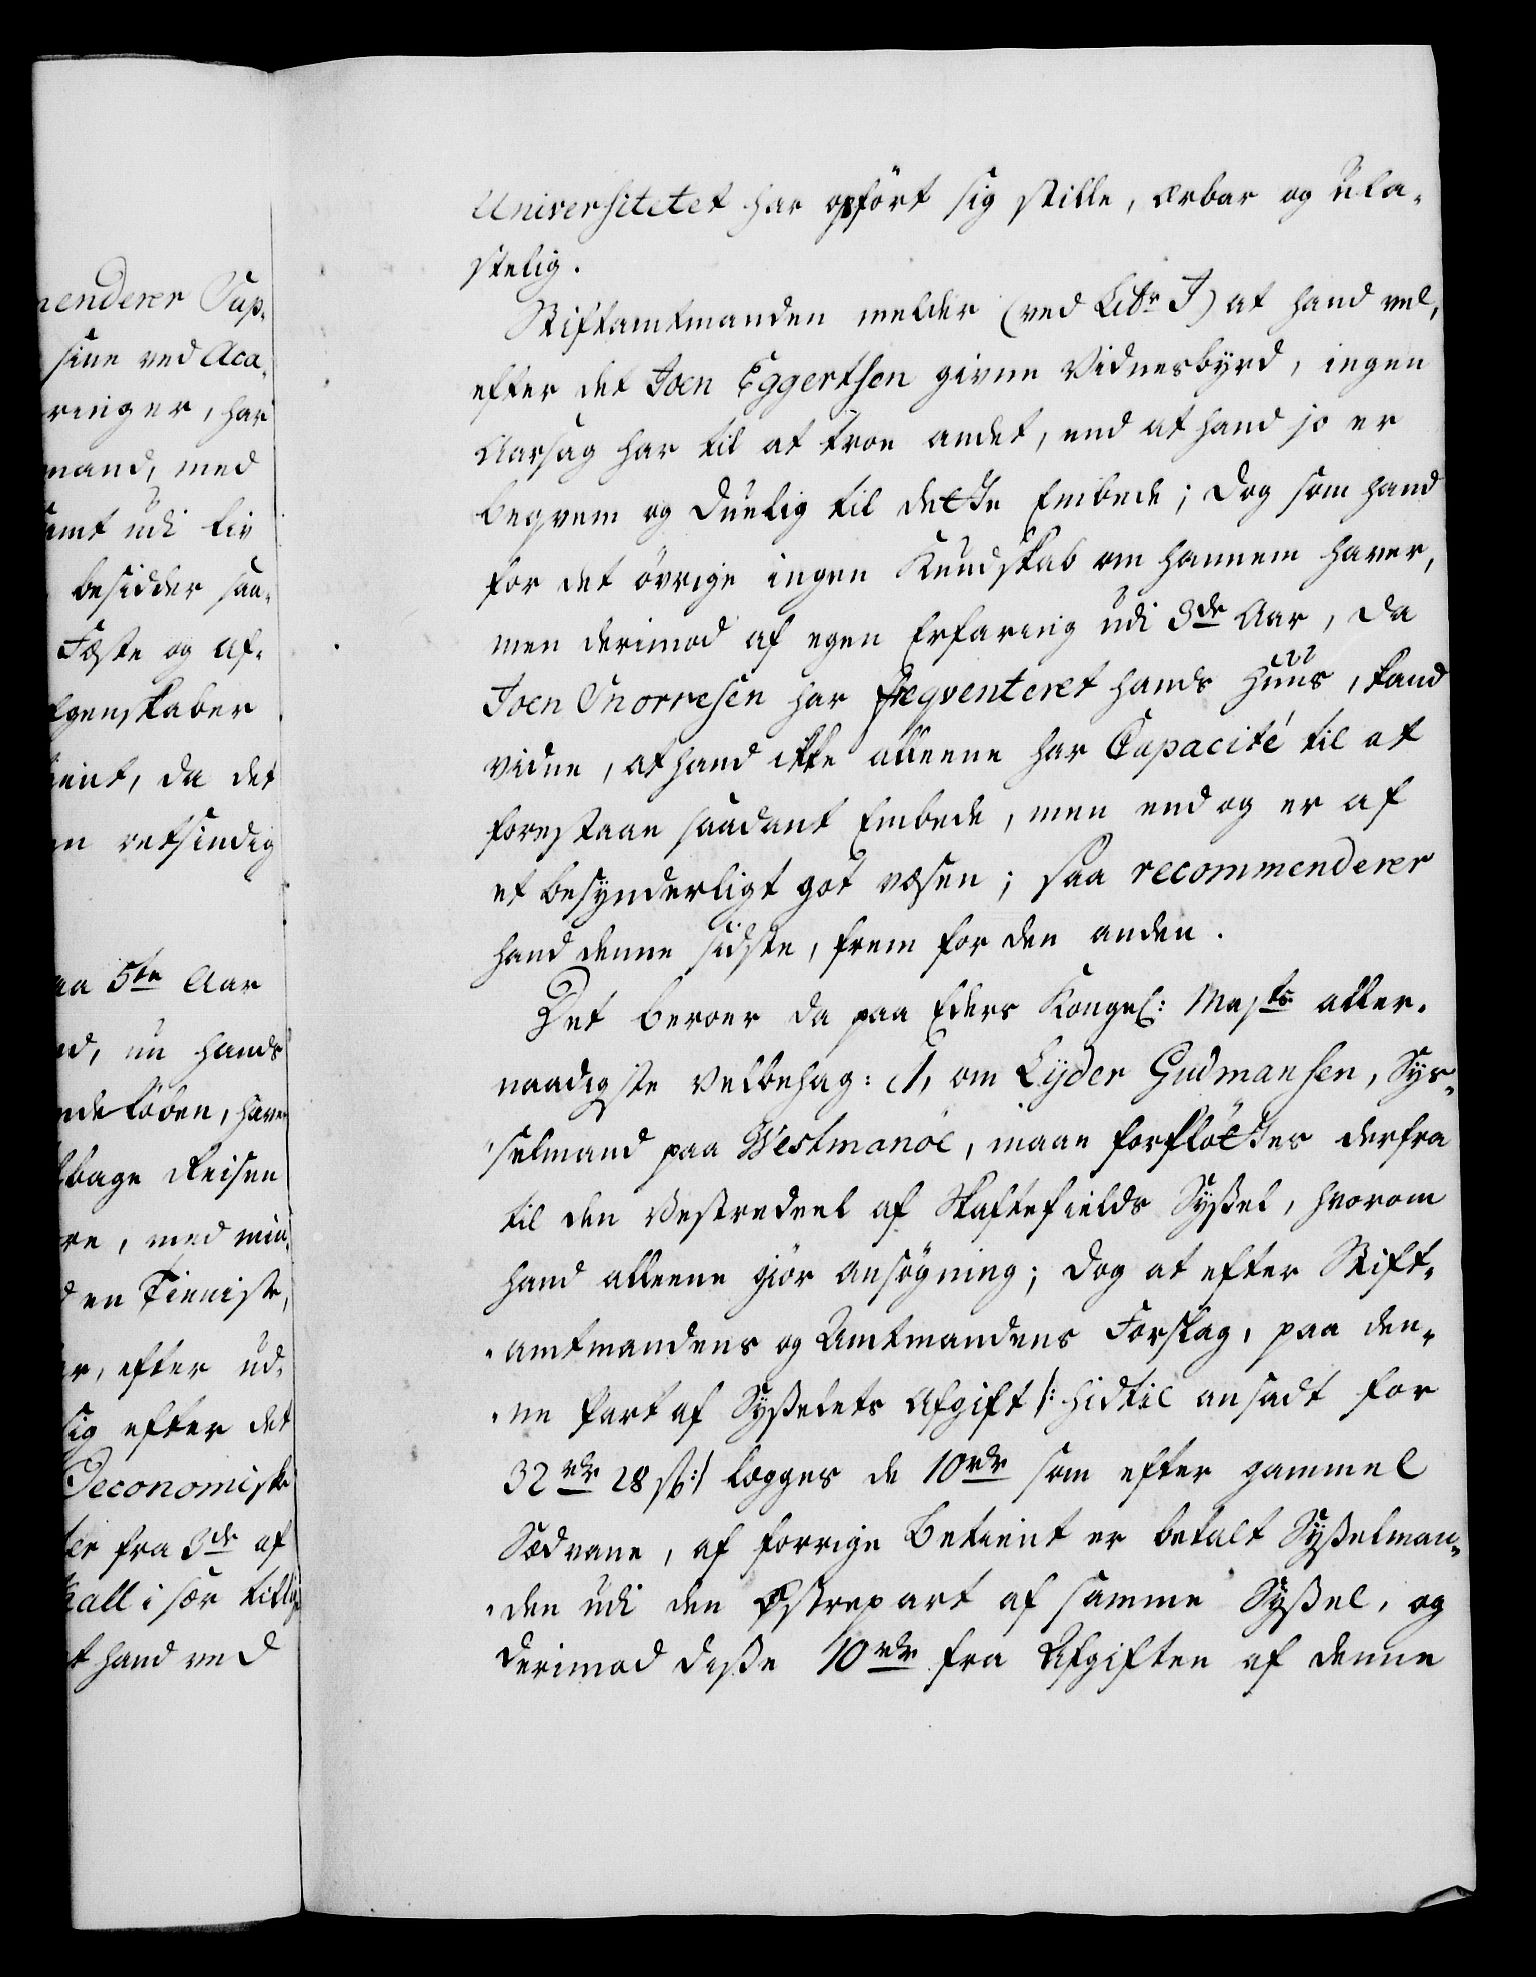 menderer Sup-
sine ved Aca-
ringer, har
mand, med
samt udi liv
besidder saa-
Fæste og af-
Egenskaber
tient, da det
en retsindig
aa 5te Aar
ed, nu hands
nde løben, haver
lbage Reisen
re, med min-
den Tieniste,
er, efter ud-
sig efter det
Oeconomiske
ter fra 3de af
Kall i sær titlig
t hand ved
Universitetet har opført sig stille, ærbar og ula-
stelig.
Stiftamtmanden melder (ved Litr J) at hand vel,
efter det Joen Eggertsen givne Vidnesbyrd, ingen
Aarsag har til at troe andet, end at hand jo er
beqvem og duelig til dette Embede; dog som hand
for det øvrige ingen Kundskab om hannem haver,
men derimod af egen Erfaring udi 3de Aar, da
Joen Snorresen har freqventeret hands Huus, kand
vidne, at hand ikke alleene har Capacité til at
forestaae saadant Embede, men end og er af
et besynderligt got væsen; saa recommenderer
hand denne sidste, frem for den anden.
Det beroer da paa Eders Kongel: Majts aller-
naadigste Velbehag: 1, om Eyder Gudmansen, Sys-
selmand paa Westmanöe, maae forfløttes derfra
til den Vestredeel af Skaftefields Syßel, hvorom
hand alleene giør ansøgning; dog at efter Stift-
amtmandens og Amtmandens Forslag, paa den-
ne Part af Syßelets Afgift /: hidtil ansadt for
32 rdr 28 sß :/ lægges de 10 rdr som efter gammel
Sædvane, af forrige Betient er betalt Syßelman-
den udi den Østrepart af samme Syßel, og
derimod deße 10 rdr fra Afgiften af denne